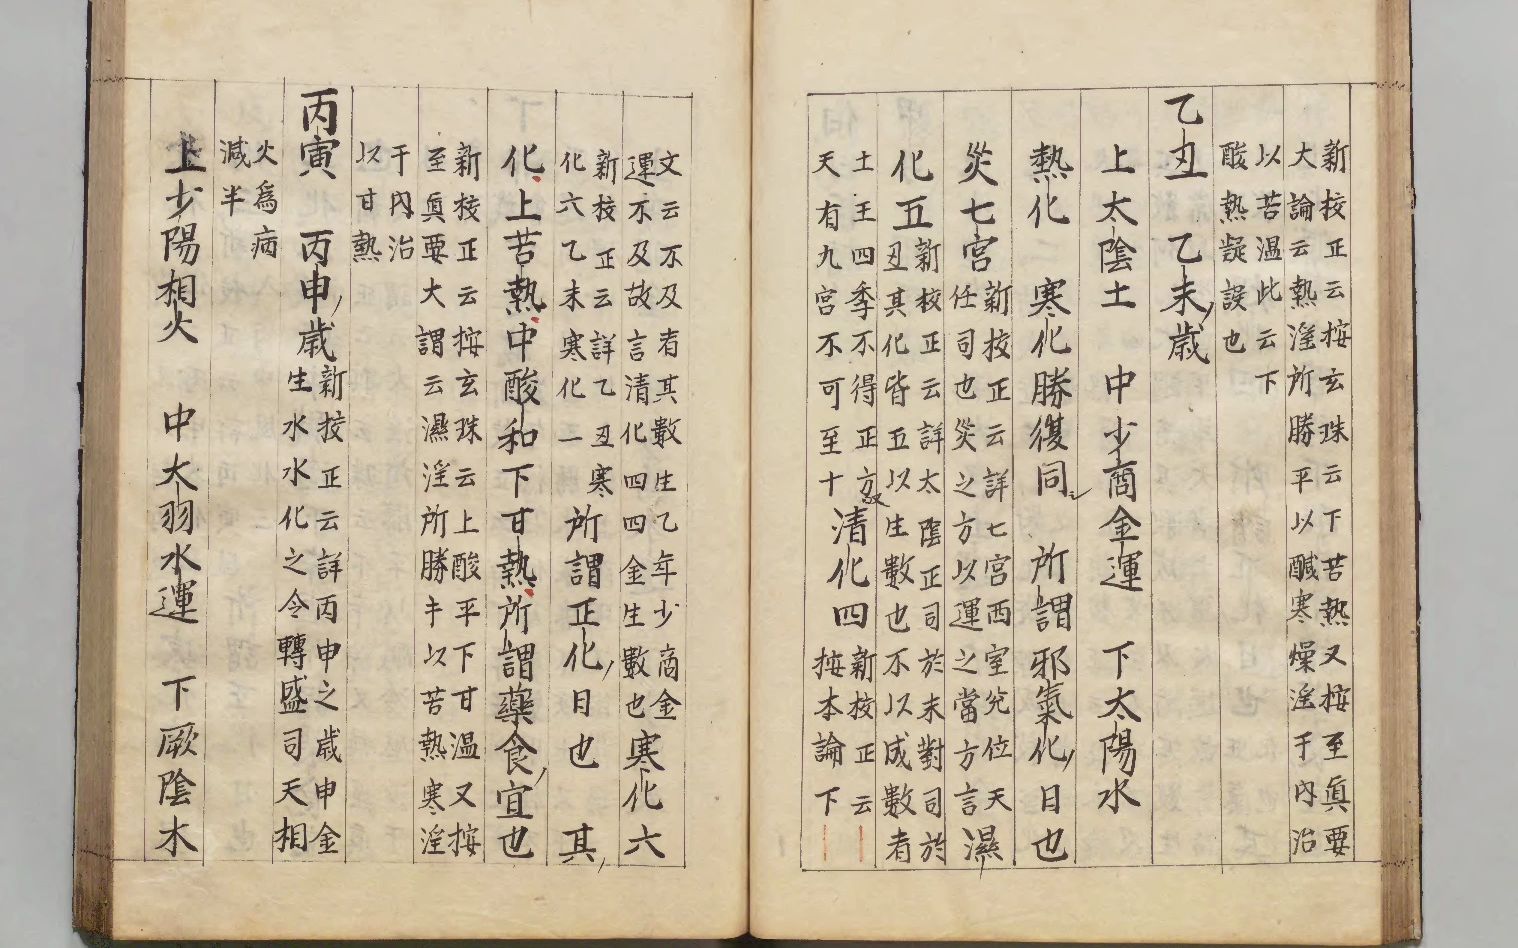 新校正云按玄珠云下苦熱又按至眞要
大論云熱淫所勝平以醎寒燥淫于內治
以苦温此云下
酸熱疑誤也
乙丑 乙未歲
上太陰土 中少商金運 下太陽水
熱化 寒化勝復同 所謂邪氣化日也
災七宮
新校正云詳七宮西室兊位天
任司也災之方以運之當方言
濕
化五
新校正云詳太陰正司於未對司於
丑其化皆五以生數也不以成數者
土王四季不得正方
天有九宮不可至十
清化四
新校正云
按本論下
文云不及者其數生乙年少商金
運不及故言清化四四金生數也
寒化六
新校正云詳乙丑寒
化六乙未寒化一
所謂正化日也 其
化上苦熱中酸和下甘熱所謂藥食宜也
新校正云按玄珠云上酸平下甘温又按
至眞要大謂云濕淫所勝平以苦熱寒淫
于內治
以甘熱
丙寅 丙申歲
新校正云詳丙申之歲申金
生水水化之令轉盛司天相
火爲病
減半
上少陽相火 中大羽水運 下厥陰木